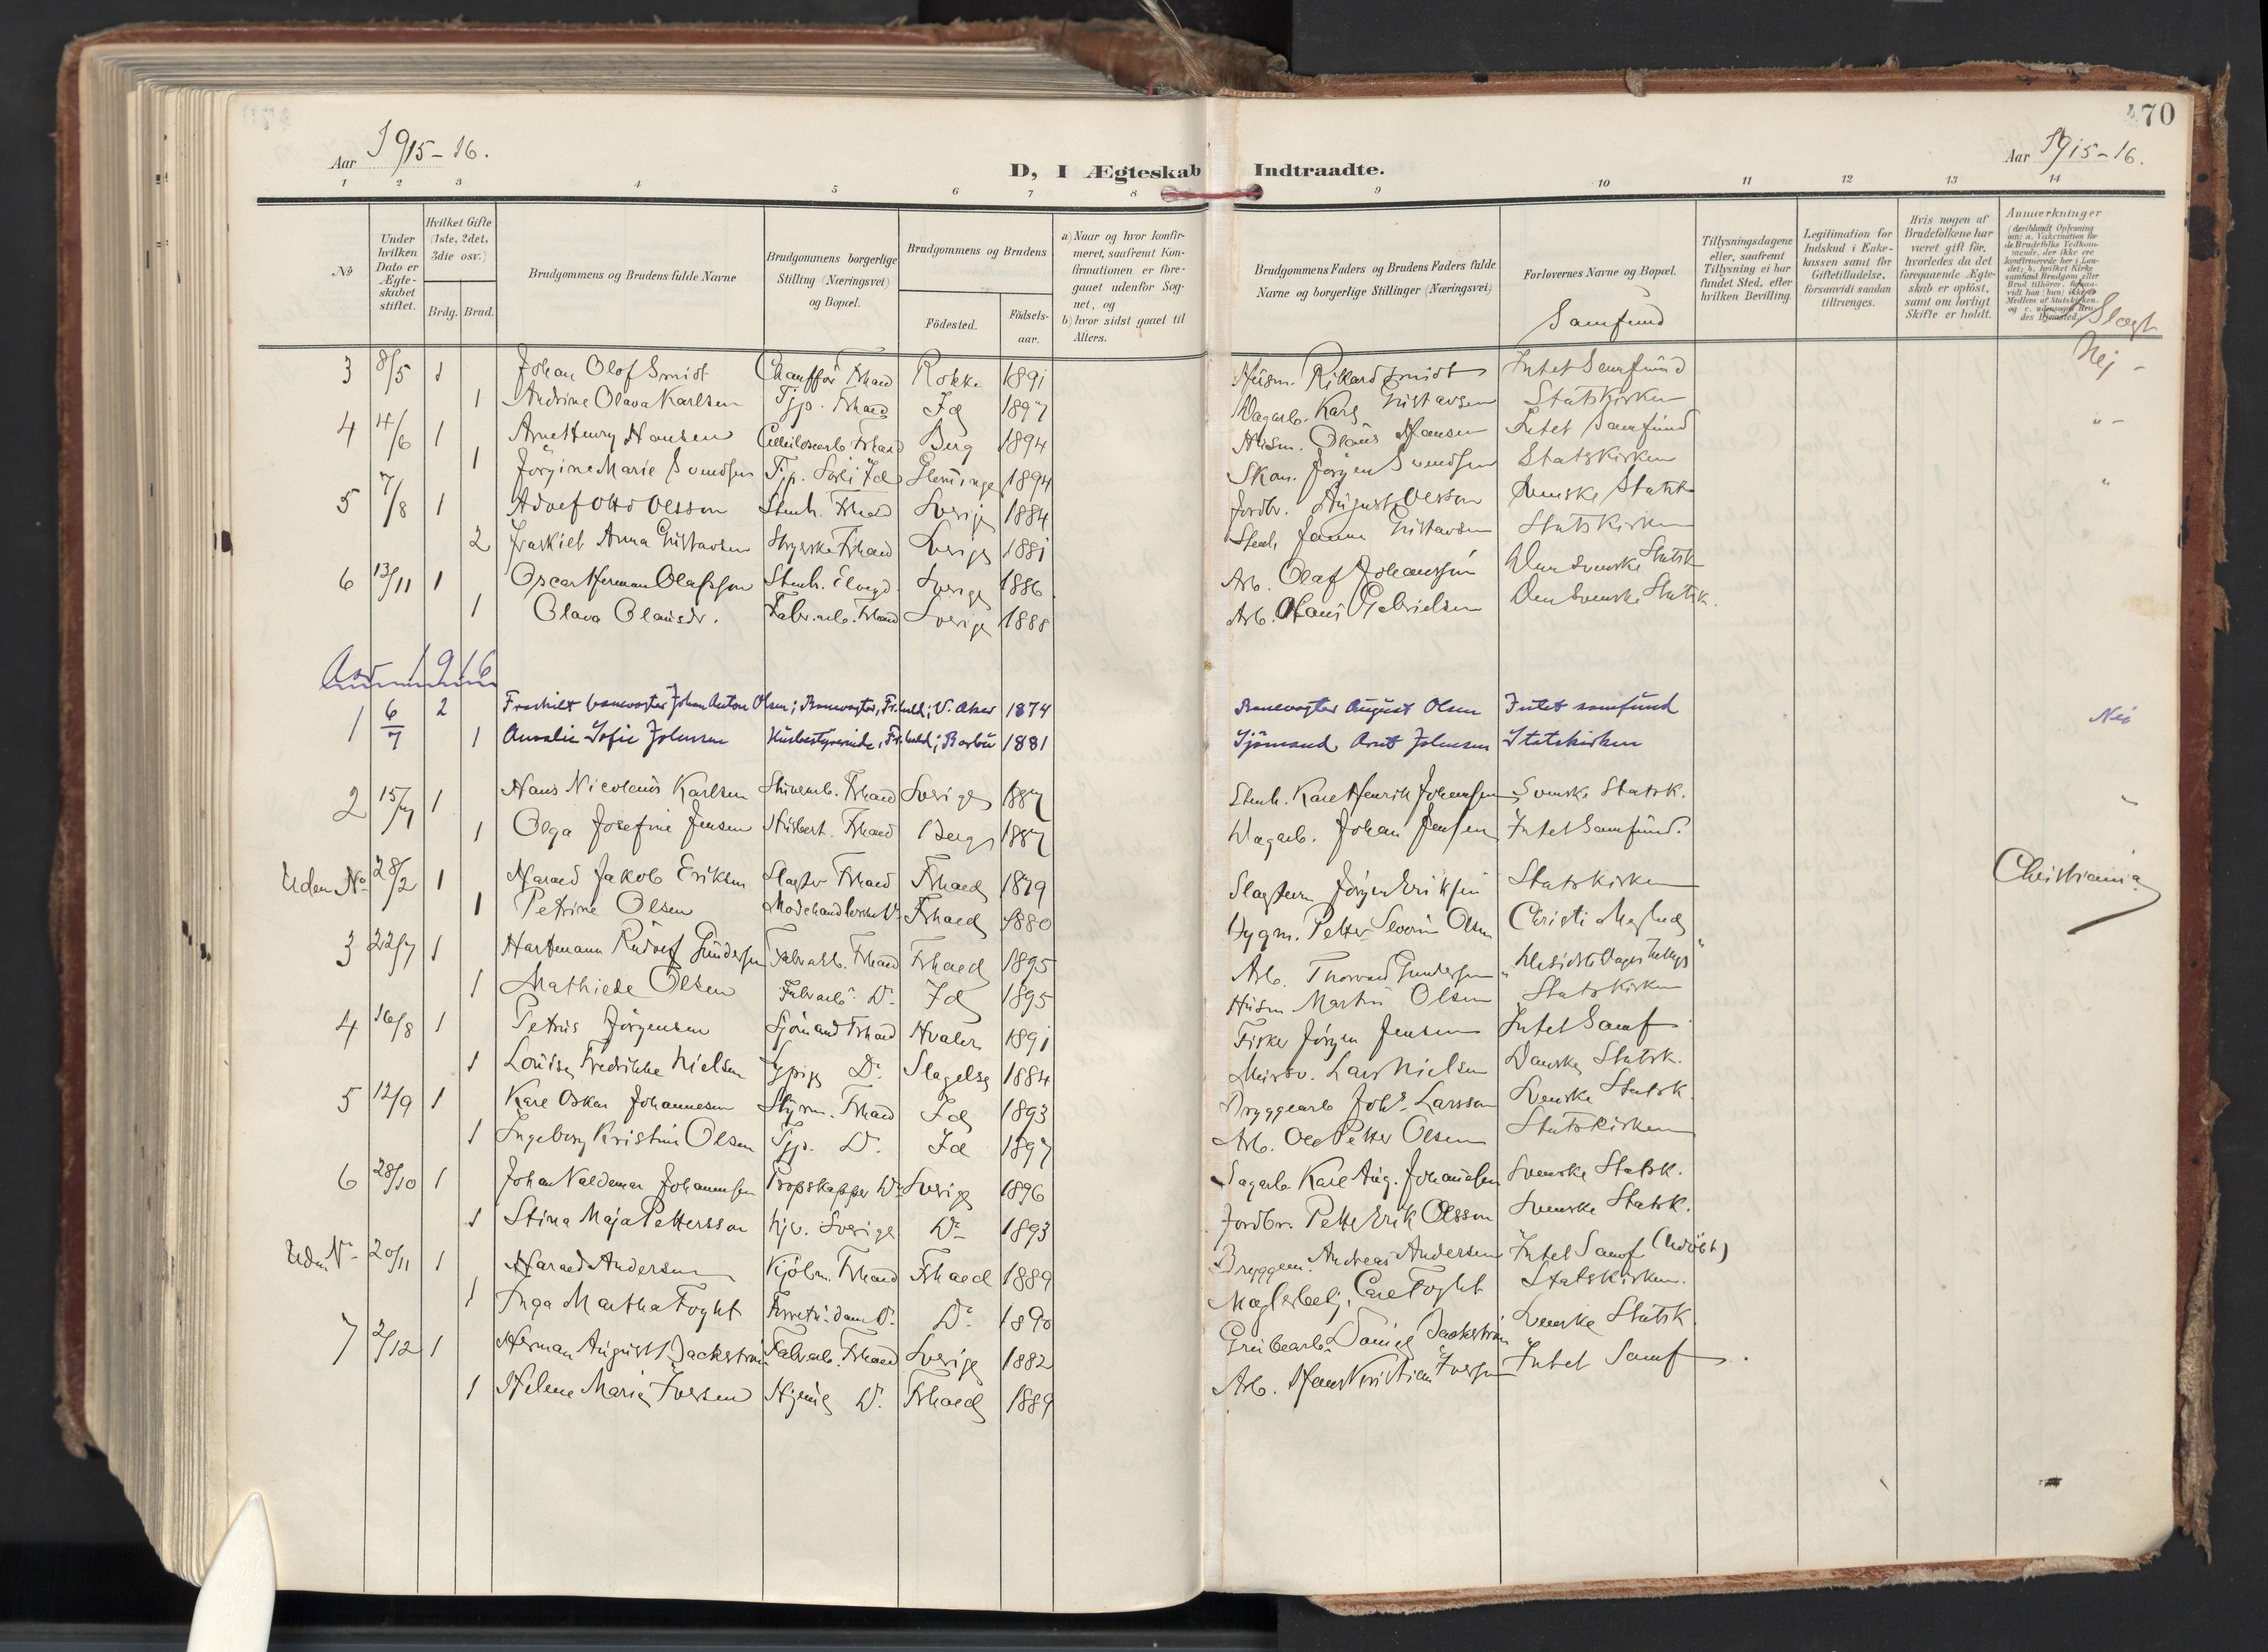 470
Aar 1915-16.
D, I Ægteskab Indtraadte.
Aar 1915-16.
1 2 3 4 5 6 7 8 9 10 11 12 13 14
No
Under hvilken Dato er Ægte-skabet stiftet.
Hvilket Gifte (1ste, 2det, 3die osv.)
Brdg. Brud.
Brudgommens og Brudens fulde Navne
Brudgommens borgerlige Stilling (Næringsvei) og Bopæl.
Brudgommens og Brudens
Födested. Födsels-aar.
a) Naar og hvor konfir-meret, saafremt Kon-firmationen er fore-gaaet udenfor Sog-net, og
b) hvor sidst gaaet til Alters.
Brudgommens Faders og Brudens Faders fulde Navne og borgerlige Stillinger (Næringsvei)
Forlovernes Navne og Bopæl.
Samfund
Tillysningsdagene eller, saafremt Tillysning ei har fundet Sted, efter hvilken Bevilling.
Legitimation for Indskud i Enke-kassen samt for Giftetilladelse, forsaavidt saadan tiltrænges.
Hvis nogen af Brudefolkene har været gift før, hvorledes da det foregaaende Ægte-skab er opløst, samt om lovligt Skifte er holdt.
Anmærkninger
Slægt
3 8/5 1 Johan Olof Smidt Chaufför Frhald Rokke 1891 Husm. Rikard Smidt Intet Samfund Nej -
1 Andrine Olava Karlsen Tjp. Frhald Id 1897 Dagarb. Karl Gustavsen Statskirken
4 4/6 1 Arne Henry Hansen Frhald Berg 1894 Husm. Olaus Hansen Intet Samfund " -
1 Jörgine Marie Svendsen Tjp. Id Glemminge 1894 Skom. Jörgen Svendsen Statskirken
5 7/8 1 Adolf Otto Olsson Stenh. Frhald Sverige 1884 Jordbr. August Olsson Svenske Statsk "
2 Fraskilt Anna Gustavsen Strygerske Frhald Sverige 1881 Stenh. Gustavsen Statskirken
6 13/11 1 Oscar Herman Olafsson Stenh. Sverige 1886 Arb. Olaf Johansson Den Svenske Statsk
1 Olava Olausdr. Fabr.arb. Frhald Sverige 1888 Arb. Olaus Gabrielsen Den Svenske Statsk.
Aar 1916
1 6/7 2 Fraskilt banevogter Johan Anton Olsen; Banevogter, Fr.hald; V. Aker 1874 Banevogter August Olsen Intet samfund Nei
1 Amalie Sofie Johnsen Husbestyrerinde, Fr.hald; Barbu 1881 Sjömand Arnt Johnsen Statskirken
2 15/7 1 Hans Nicolaus Karlsen Frhald Sverige 1887 Stenh. Karl Henrik Johansen Svenske Statsk. "
1 Olga Josefine Jensen Husbest. Frhald Berg 1887 Dagarb. Johan Jensen Intet Samfund.
Uden No 28/2 1 Harald Jakob Eriksen Slagter Frhald Frhald 1879 Slagterm Jörgen Eriksen Statskirken Christiania
1 Petrine Olsen Modehandlerske Do Frhald 1880 Bygm. Petter Severin Olsen Christi Menighed
3 22/7 1 Hartmann Rudolf Gundersen Fabrarb. Frhald Frhald 1895 Arb. Thorvald Gundersen "De sidste Dages Hellige"
1 Mathilde Olsen Fabrarb. Do Id 1895 Husm Martin Olsen Statskirken
4 16/8 1 Petrus Jörgensen Sjömand Frhald Hvaler 1891 Fisker Jörgen Jensen Intet Samf
1 Louise Fredrikke Nielsen Do Slagelse 1884 Mursv. Lars Nielsen Danske Statsk.
5 12/9 1 Karl Oskar Johannesen Styrm. Frhald Id 1893 Bryggearb Johs. Larsson Svenske Statsk
1 Ingeborg Kristine Olsen Tjp. Do. Id 1897 Arb. Ole Petter Olsen Statskirken
6 28/10 1 Johan Valdemar Johannsen Propskapper Do Sverige 1896 Sagarb Karl Aug. Johansen Svenske Statsk.
1 Stina Maja Pettersson hjv. Sverige Do 1893 Jordbr. Petter Erik Olsson Svenske Statsk.
Uden No 20/11 1 Harald Andersen Kjöbm. Frhald Frhald 1889 Bryggem. Andreas Andersen Intet Samf (Udöbt)
1 Inga Martha Foght Do. Do 1890 Carl Foght Statskirken.
7 2/12 1 Herman August Backström Fabrarb. Frhald Sverige 1882 Grubearb. Daniel Backström Svenske Statsk.
1 Helene Marie Iversen Hjemme Do. Frhald 1889 Arb. Hans Kristian Iversen Intet Samf.